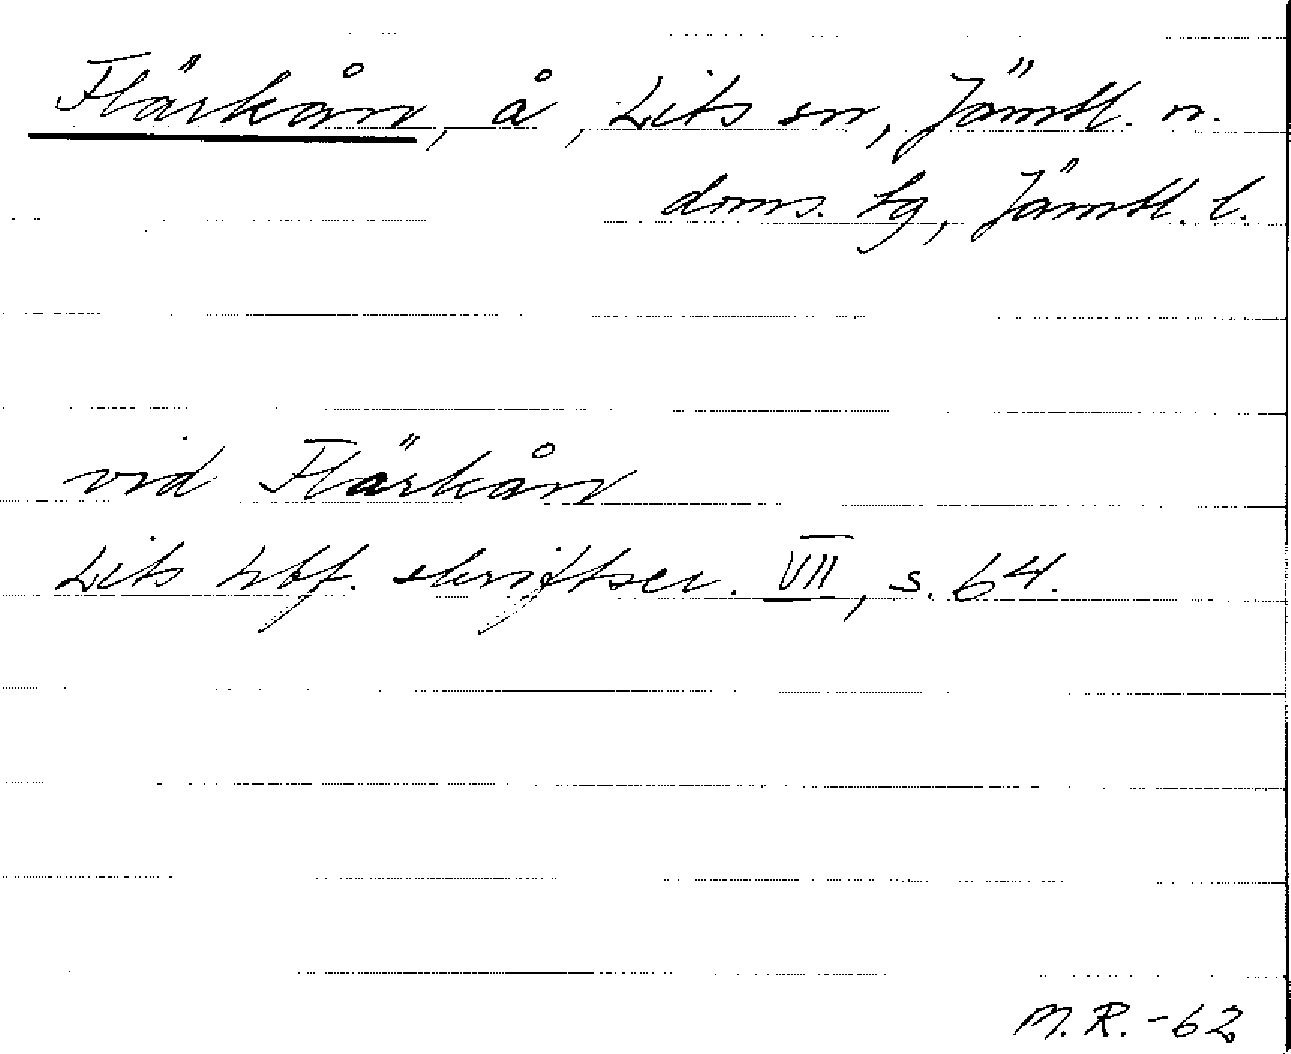 Flärkån, å, Lits sn, Jämtl. n.
doms. tg, Jämtl. l.
vid Flärkån
Lits hbf. skriftser. VII, s. 64.
M.R. -62